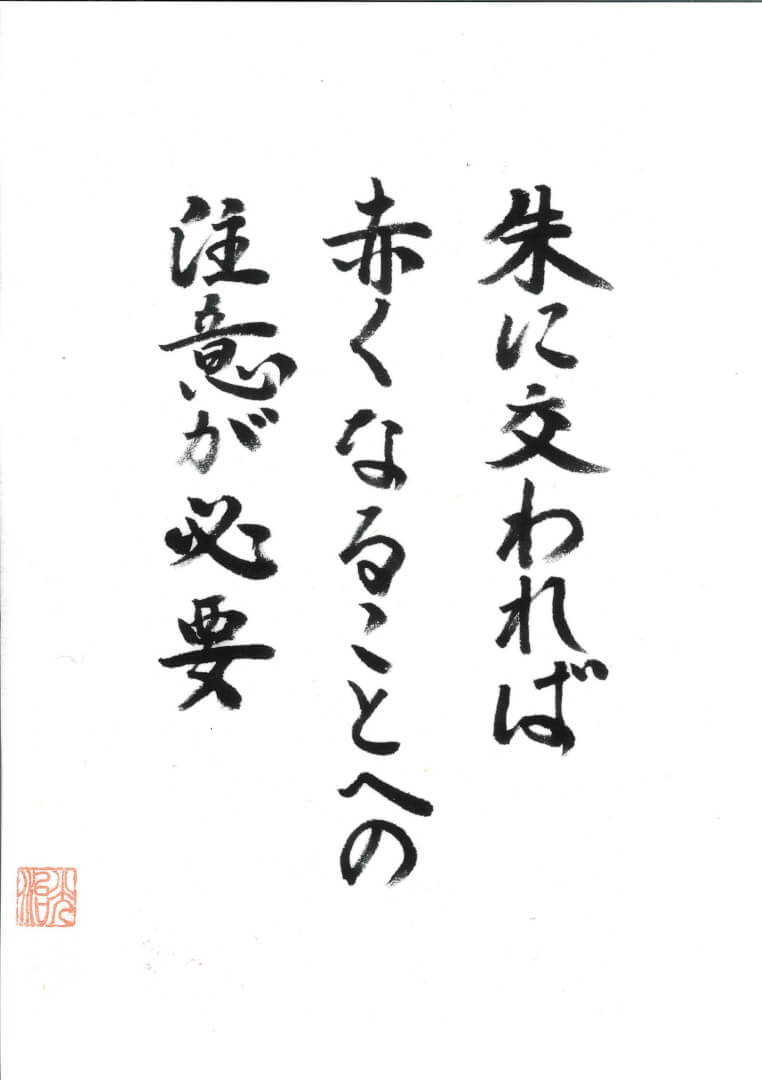 朱に交われば
赤くなることへの
注意が必要